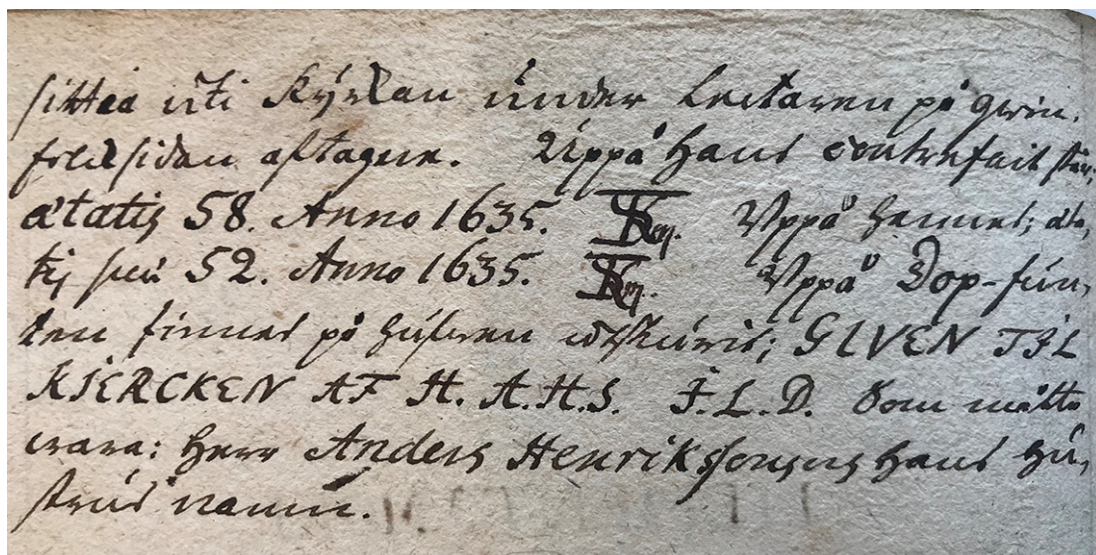 sittia uti Kyrkan under Lectaren på qwin,
folcksidan aftagne. Uppå hans contrefait står;
ætatis 58. Anno 1635. Uppå hennes; æta,
tis suæ 52. Anno 1635. Uppå Dop-fun,
ten finnes på husven uthskurit; GIVEN TIL
KIERCKEN AF H. A.H.S. I.L.D. Som måtte
wara: Herr Anders Henrikssons och hans hu,
strus namn.